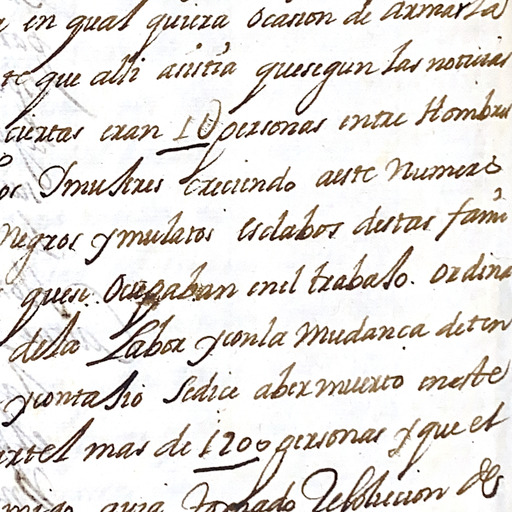 en qual quiera ocasion de armar la
te que alli asistia quesegun las noticias
ciertas eran 10 personas entre Hombres
os Ymujeres creciendo aeste Numero
Negros ymulatos Esclabos destas fami
quese Ocupaban enel trabaJo. ordina
dela Labor yconla Mudanca deten
ycontaJio Sedice aber muerto eneste
artel mas de 1200 personas yque el